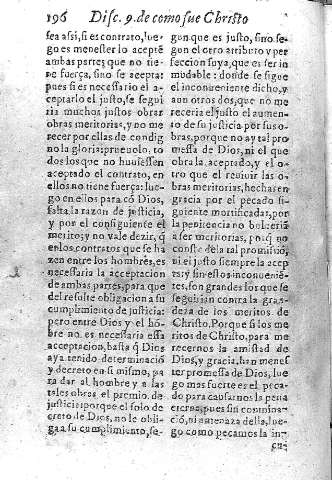 196 Disc. 9. de como fue Christo
sea assi, si es contrato, lue-
go es menester lo aceptẽ
ambas partes que no tie-
ne fuerça, sino se acepa:
pues si es necessario el a-
ceptarlo el justo, se segui
ria muchos justos obrar
obras meritorias, y no me
recer por ellas de condig
no la gloria: prueuolo, to
dos los que no huuiessen
aceptado el contrato, en
ellos no tiene fuerça: lue-
go en ellos para cõ Dios,
falta la razon de justicia,
y por el consiguiente el
merito; y no vale dezir, q̃
en los contratos que se ha
zen entre los hombres, es
necessaria la acceptacion
de ambas partes, para que
del resulte obligacion a su
cumplimiento de justicia:
pero entre Dios y el hõ-
bre no es necessaria essa
acceptacion, basta q̃ Dios
aya tenido determinació
y decreto en si mismo, pa
ra dar al hombre y a las
tales obras el premio de
justicia: porque el solo de
creto de Dios, no le obli-
ga a su cumplimiento, se-
gun que es justo, sino se-
gun el otro atributo y per
feccion suya, que es ser in
mudable: donde se sigue
el inconueniente dicho, y
aun otros dos, que no me
receria el justo el aumen-
to de su justicia por sus o-
bras, porque no ay tal pro
messa de Dios, ni el que
obra la aceptado, y el o-
tro que el reuiuir las o-
bras meritorias, hechas en
gracia por el pecado si-
guiente mortificadas, por
la penitencia no bolueriã
a ser meritorias, porq̃ no
conste desta tal promissiõ,
ni el justo siempre la acep
ta: y sin estos inconueniẽ-
tes, son grandes los que se
seguiriã contra la gran-
deza de los meritos de
Christo. Porque si los me
ritos de Christo, para me
recernos la amistad de
Dios, y gracia, han menes
ter promessa de Dios, lue
go mas fuerte es el peca-
do para causarnos la pena
eterna, pues sin comina-
ciõ, ni amenaza della, lue-
go como pecamos la in-
cu-